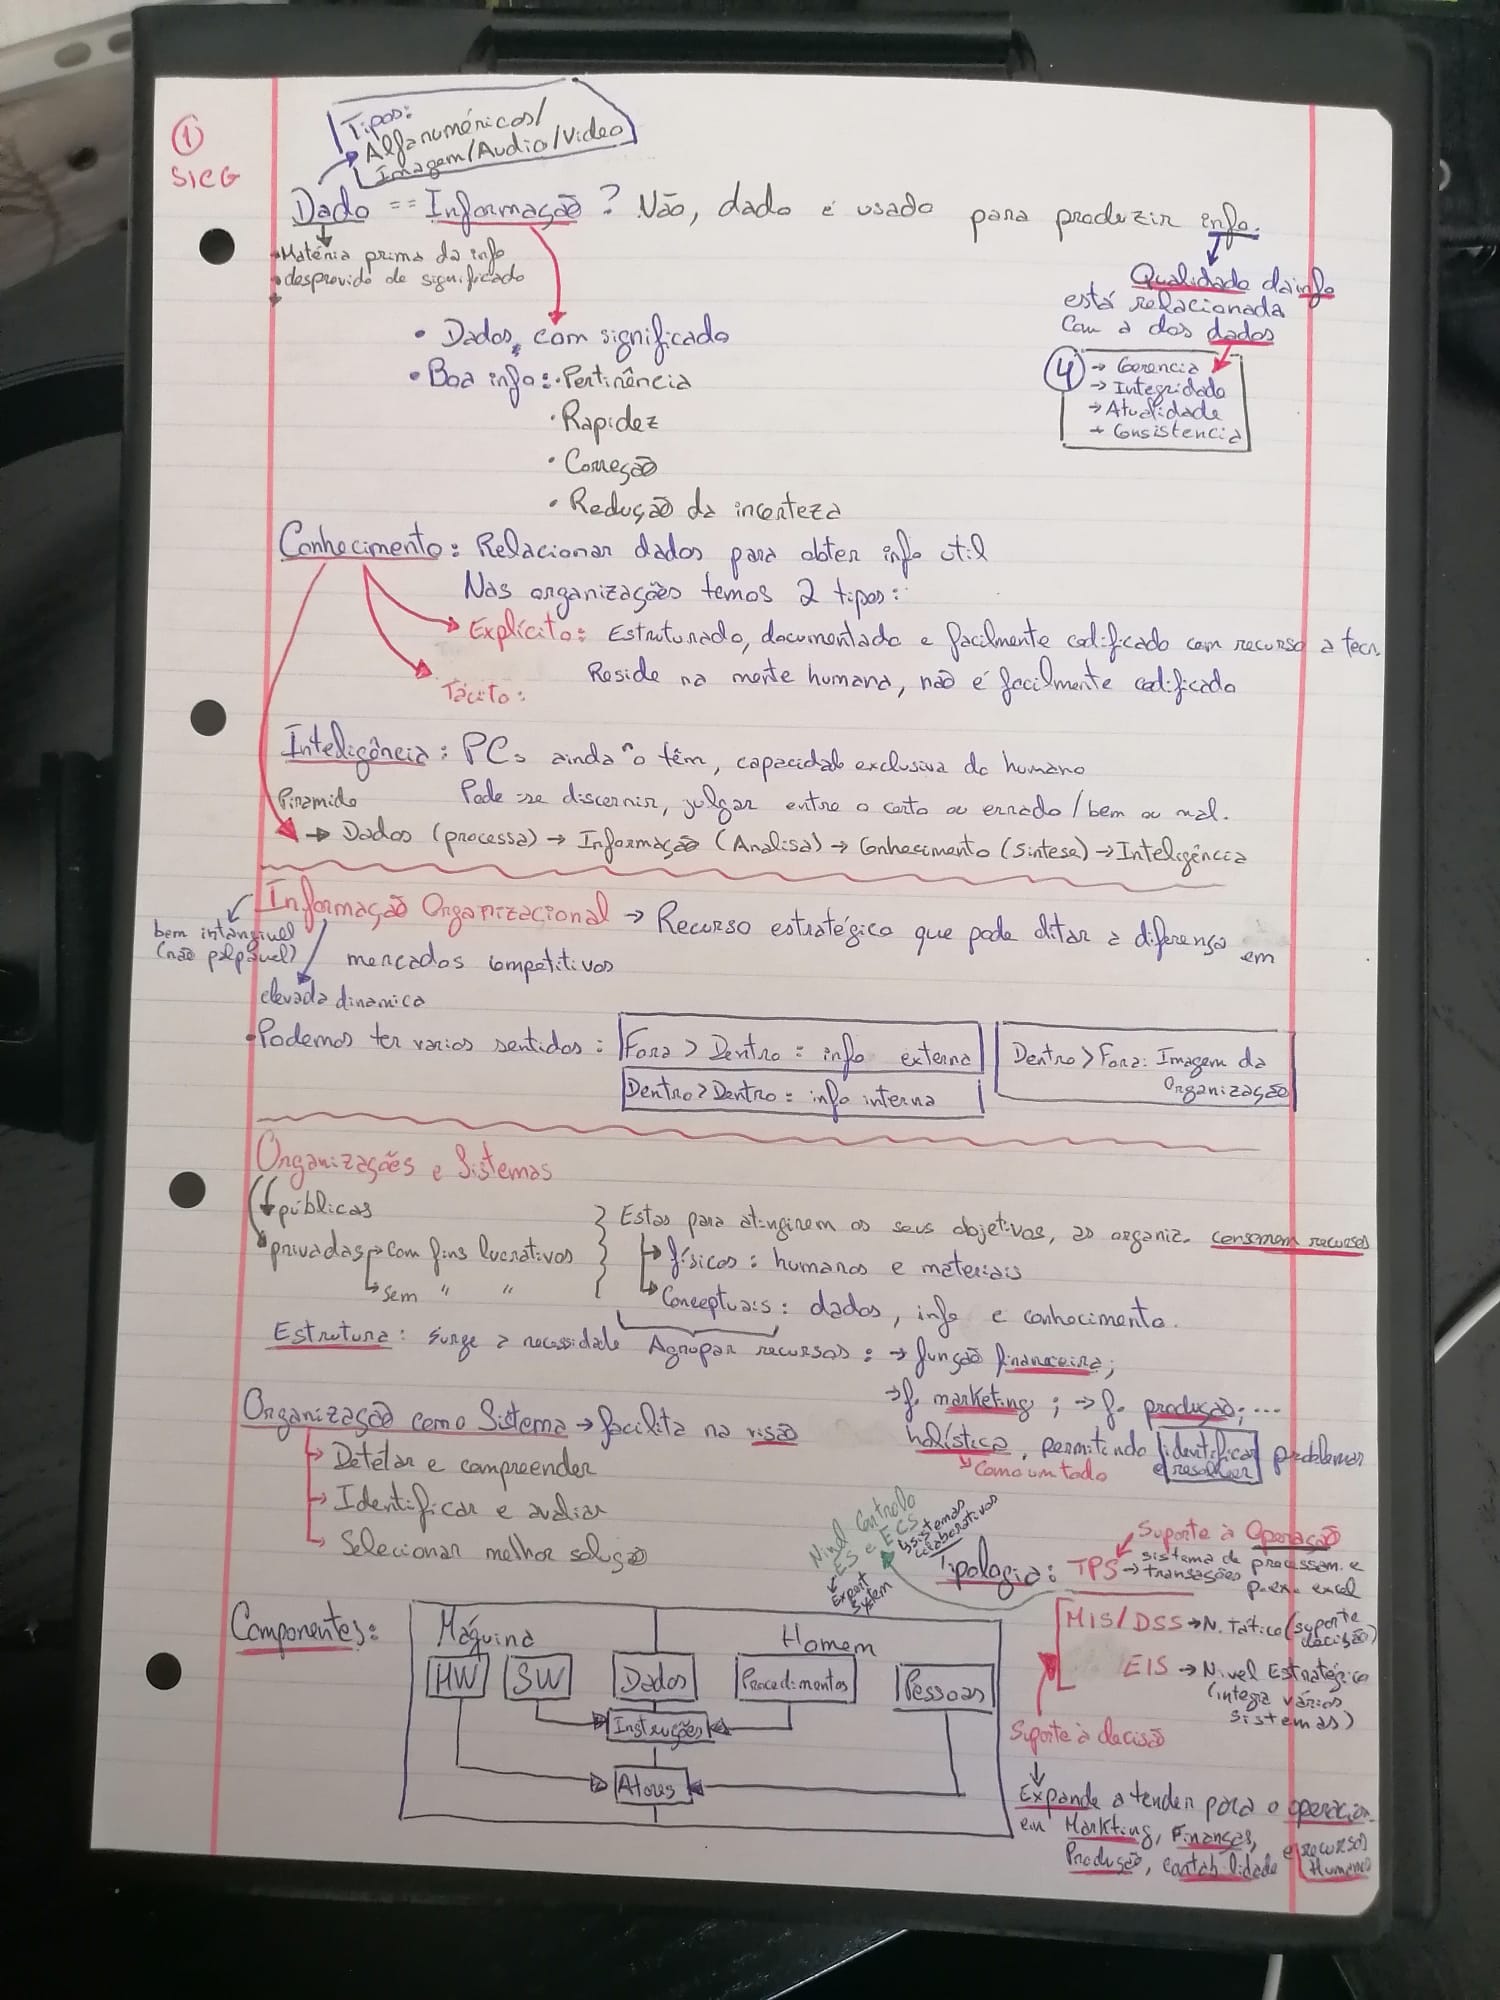 ① SICG
Tipos:
Alfanuméricos/
Imagem/Audio/Video
Dado == Informação? Não, dado é usado para produzir info.
• Matéria prima da info
• desprovido de significado
Qualidade da info
está relacionada
com a dos dados
④ → Gerencia
→ Integridade
→ Atualidade
→ Consistencia
• Dados com significado
• Boa info: • Pertinência
• Rapidez
• Correção
• Redução da incerteza
Conhecimento: Relacionar dados para obter info util
Nas organizações temos 2 tipos:
→ Explícito: Estruturado, documentado e facilmente codificado com recurso a tecn.
→ Tácito: Reside na mente humana, não é facilmente codificado
Inteligência: PCs ainda ñ o têm, capacidade exclusiva do humano
Pode-se discernir, julgar entre o certo ou errado/bem ou mal.
Piramide
→ Dados (processa) → Informação (Analisa) → Conhecimento (Sintese) → Inteligência
Informação Organizacional → Recurso estratégico que pode ditar a diferença em
mercados competitivos
bem intangivel
(não palpável)
elevada dinamica
• Podemos ter varios sentidos: Fora > Dentro = info externa
Dentro > Dentro = info interna
Dentro > Fora: Imagem da
Organização
Organizações e Sistemas
públicas
privadas → com fins lucrativos
→ sem " "
Estas para atingirem os seus objetivos, as organiz. consomem recursos
→ físicos: humanos e materiais
→ Conceptuais: dados, info e conhecimento.
Estrutura: Surge a necessidade Agrupar recursos: → função financeira;
→ f. marketing; → f. produção; ...
Organização como Sistema → facilita na visão
holística, permitindo identificar problemas
e resolver
→ Como um todo
→ Detetar e compreender
→ Identificar e avaliar
→ Selecionar melhor solução
Nivel Controlo
ES e ECS
→ sistemas
colaborativos
Expert
System
Tipologia: TPS → sistema de processam. e
transações p.ex. excel
Suporte à Operação
MIS/DSS → N. Tático (suporte
decisão)
EIS → Nivel Estratégico
(integra vários
sistemas)
Suporte à decisão
Expande atender para o operacion.
em Markting, Finanças,
Produção, contabilidade e recursos
Humanos
Componentes:
Máquina
Homem
HW
SW
Dados
Procedimentos
Pessoas
Instruções
Atores